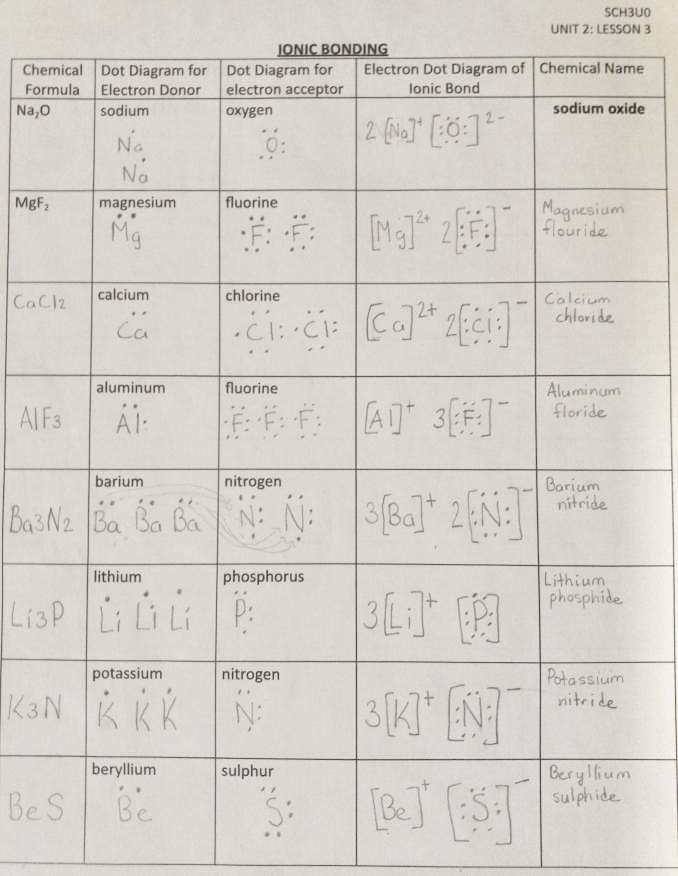 SCH3U0
UNIT 2: LESSON 3
IONIC BONDING
Chemical Formula
Dot Diagram for Electron Donor
Dot Diagram for electron acceptor
Electron Dot Diagram of Ionic Bond
Chemical Name
Na₂O
sodium
Na
Na
oxygen
O
2 [Na]⁺ [O]²⁻
sodium oxide
MgF₂
magnesium
Mg
fluorine
F F
[Mg]²⁺ 2[F]⁻
Magnesium
flouride
CaCl2
calcium
Ca
chlorine
Cl Cl
[Ca]²⁺ 2[Cl]⁻
Calcium
chloride
AlF3
aluminum
Al
fluorine
F F F
[Al]⁺ 3[F]⁻
Aluminum
floride
Ba3N2
barium
Ba Ba Ba
nitrogen
N N
3[Ba]⁺ 2[N]⁻
Barium
nitride
Li3P
lithium
Li Li Li
phosphorus
P
3[Li]⁺ [P]
Lithium
phosphide
K3N
potassium
K K K
nitrogen
N
3[K]⁺ [N]⁻
Potassium
nitride
BeS
beryllium
Be
sulphur
S
[Be]⁺ [S]⁻
Beryllium
sulphide